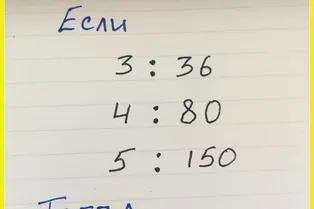 Если
3 : 36
4 : 80
5 : 150